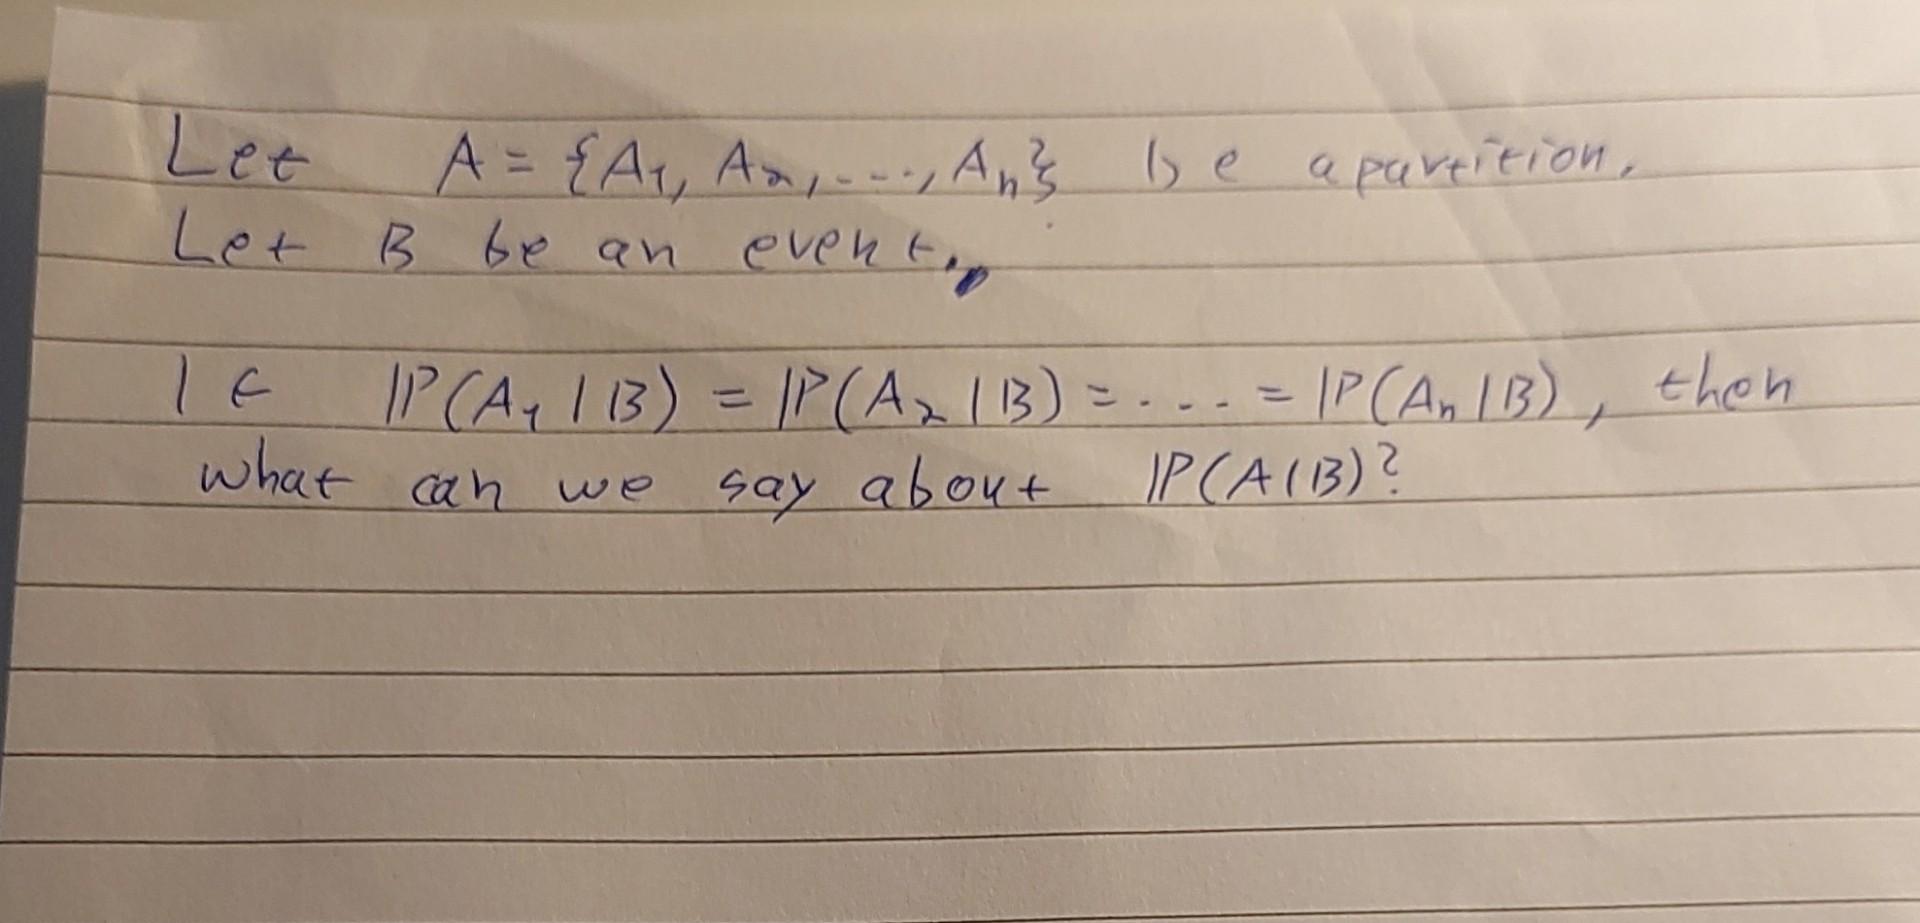 Let A = {A₁, A₂, ...., Aₙ} be a partition.
Let B be an event.
If ℙ(A₁ | B) = ℙ(A₂ | B) = .... = ℙ(Aₙ | B), then
what can we say about ℙ(A|B)?